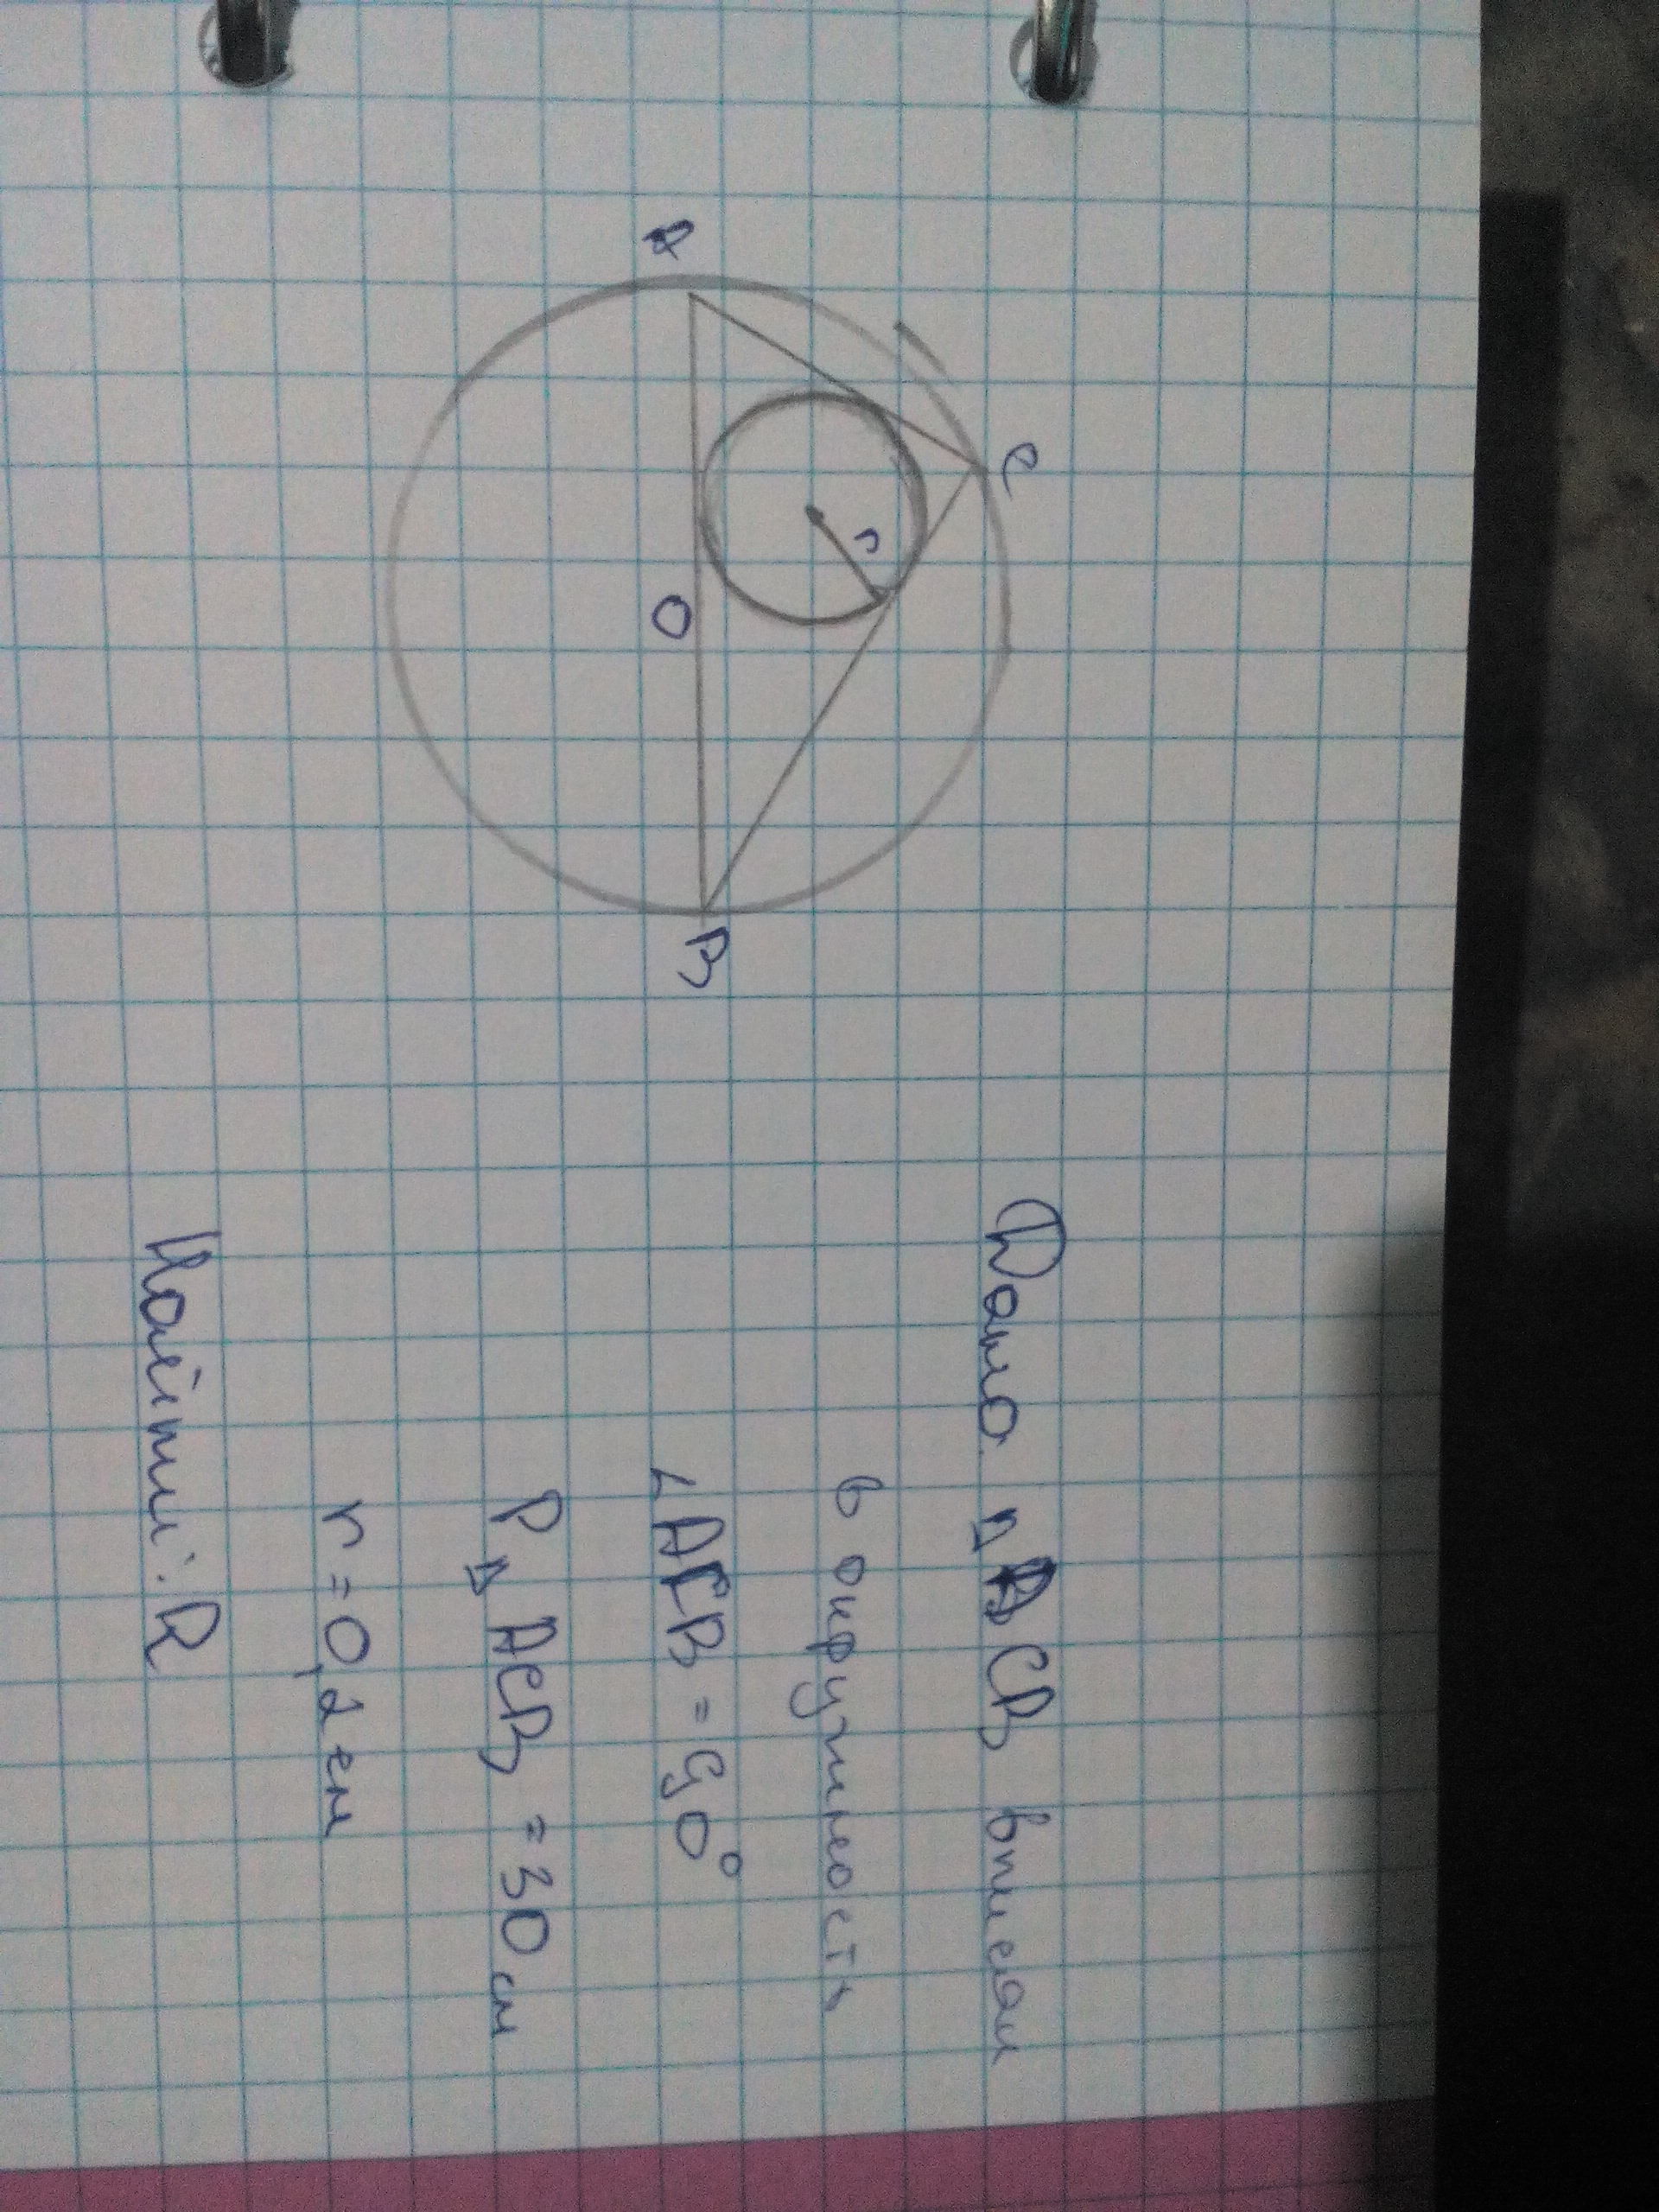 A
C
r
O
B
Дано △ACB вписан
в окружность
∠ACB = 90°
P △ ACB = 30 см
r = 0,2 см
Найти: R